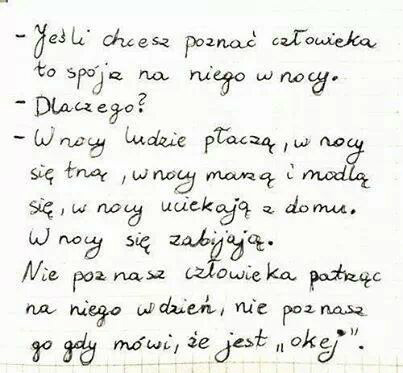 - Jeśli chcesz poznać człowieka
to spójrz na niego w nocy.
- Dlaczego?
- W nocy ludzie płaczą, w nocy
się tną, w nocy marzą i modlą
się, w nocy uciekają z domu.
W nocy się zabijają.
Nie poznasz człowieka patrząc
na niego w dzień, nie poznasz
go gdy mówi, że jest „okej".